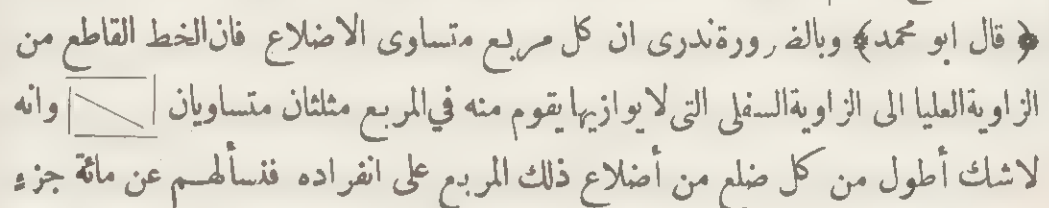 ﴿ قال ابو محمد﴾ وبالضرورة ندرى ان كل مربع متساوى الاضلاع فان الخط القاطع من
الزاوية العليا الى الزاوية السفلى التى لا يوازيها يقوم منه في المربع مثلثان متساويان وانه
لاشك أطول من كل ضلع من أضلاع ذلك المربع على انفراده فنسألهم عن مائة جزء